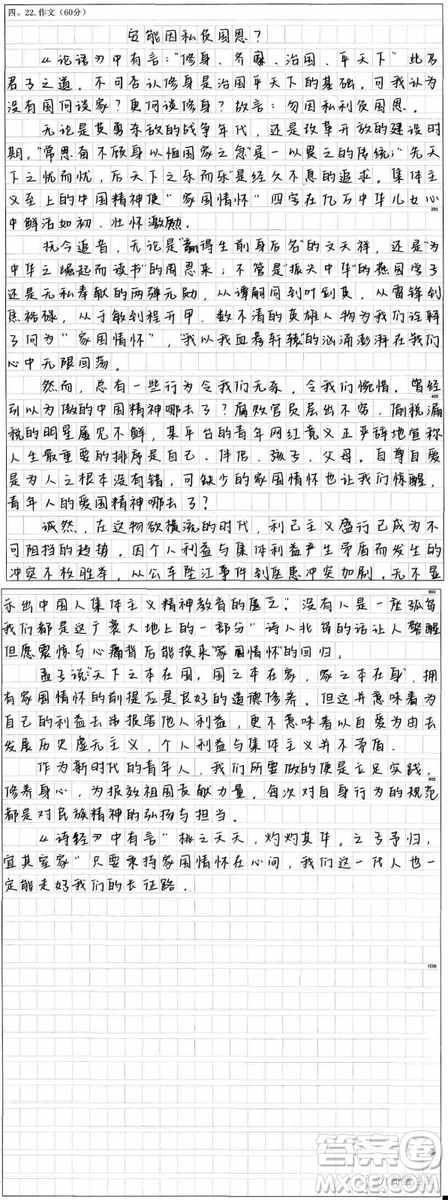 四、22.作文(60分)
安能因私负国恩？
《论语》中有言："修身、齐家、治国、平天下"此乃
君子之道，不可否认修身是治国平天下的基础，可我认为
没有国何谈家？更何谈修身？故言：勿因私利负国恩。
无论是英勇奋敌的战争年代，还是改革开放的建设时
期，"常思奋不顾身以徇国家之急"是一以贯之的传统；"先天
下之忧而忧，后天下之乐而乐"是经久不息的追求。集体主
义至上的中国精神使"家国情怀"四字在亿万中华儿女心
中鲜活如初，壮怀激励。
抚今追昔，无论是"赢得生前身后名"的文天祥，还是"为
中华之崛起而读书"的周恩来；不管是"振兴中华"的燕园学子
还是无私奉献的两弹元勋，从谭嗣同到叶剑英，从雷锋到
焦裕禄，从于敏到程开甲，数不清的英雄人物为我们诠释
了何为"家国情怀"，"我以我血荐轩辕"的汹涌澎湃在我们
心中无限回荡。
然而，总有一些行为令我们无奈，令我们惋惜。曾经
引以为傲的中国精神哪去了？腐败官员层出不穷，偷税漏
税的明星屡见不鲜，某平台的青年网红竟义正严辞地宣称
人生最重要的排序是自己、伴侣、孩子、父母。自尊自爱
是为人之根本没有错，可缺少的家国情怀也让我们惊醒，
青年人的爱国精神哪去了？
诚然，在这物欲横流的时代，利己主义盛行已成为不
可阻挡的趋势，因个人利益与集体利益产生矛盾而发生的
冲突不胜枚举，从公车坠江事件到医患冲突加剧，无不显
示出中国人集体主义精神教育的匮乏。"没有人是一座孤岛
我们都是这广袤大地上的一部分"诗人北岛的话让人警醒
但愿震惊与心痛背后能换来"家国情怀"的回归。
孟子说"天下之本在国，国之本在家，家之本在身"，拥
有家国情怀的前提应是良好的道德修养。但这并意味着为
自己的利益去谋报害他人利益，更不意味着以自爱为由去
发展历史虚无主义，个人利益与集体主义并不矛盾。
作为新时代的青年人，我们所要做的便是立足实践，
修养身心，为报效祖国贡献力量，每次对自身行为的规范
都是对民族精神的弘扬与担当。
《诗经》中有言"桃之夭夭，灼灼其华。之子于归，
宜其室家"只要秉持家国情怀在心间，我们这一代人也一
定能走好我们的长征路。
答案圈
MXQE.COM